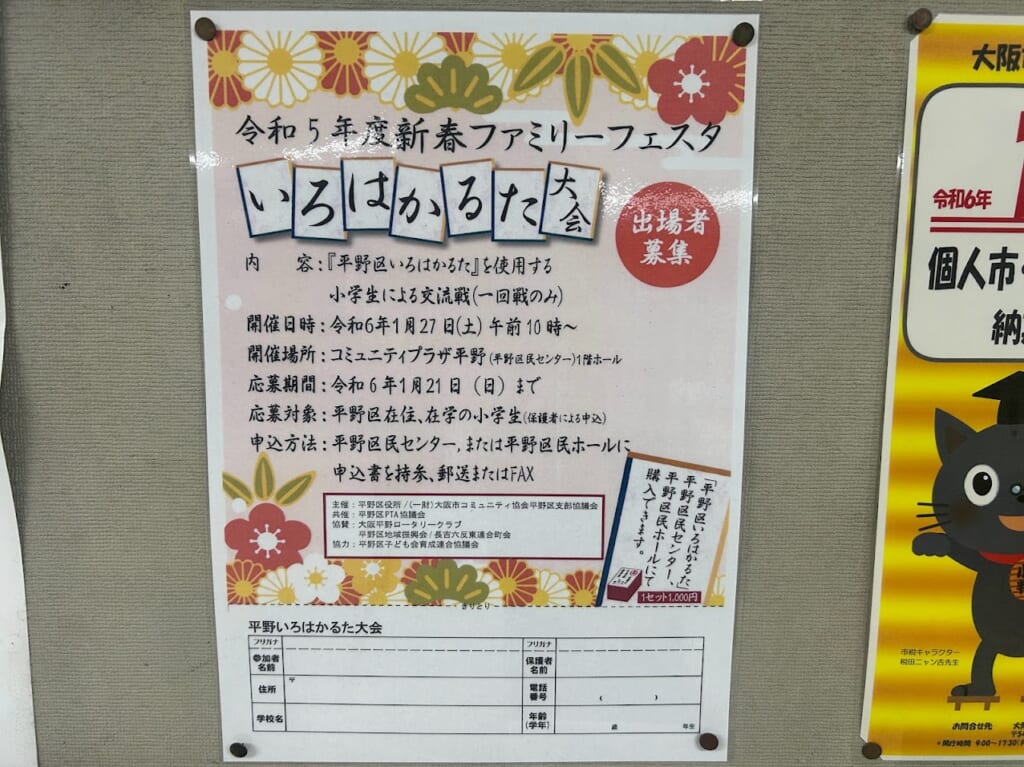 令和5年度新春ファミリーフェスタ
いろはかるた大会
出場者
募集
内　容：『平野区いろはかるた』を使用する
小学生による交流戦(一回戦のみ)
開催日時：令和6年1月27日(土) 午前10時～
開催場所：コミュニティプラザ平野(平野区民センター)1階ホール
応募期間：令和6年1月21日（日）まで
応募対象：平野区在住、在学の小学生(保護者による申込)
申込方法：平野区民センター,または平野区民ホールに
申込書を持参、郵送またはFAX
主催：平野区役所/(一財)大阪市コミュニティ協会平野区支部協議会
共催：平野区PTA協議会
協賛：大阪平野ロータリークラブ
平野区地域振興会/長吉六反東連合町会
協力：平野区子ども会育成連合協議会
「平野区いろはかるた」
平野区民センター、
平野区民ホールにて
購入できます。
1セット1,000円
きりとり
平野いろはかるた大会
フリガナ
参加者
名前
フリガナ
保護者
名前
住所
〒
電話
番号
(　　)
学校名
年齢
(学年)
歳
年生
大阪
令和6年
個人市・
納
市税キャラクター
税田ニャン吉先生
お問合せ先
＊開庁時間 9:00～17:30